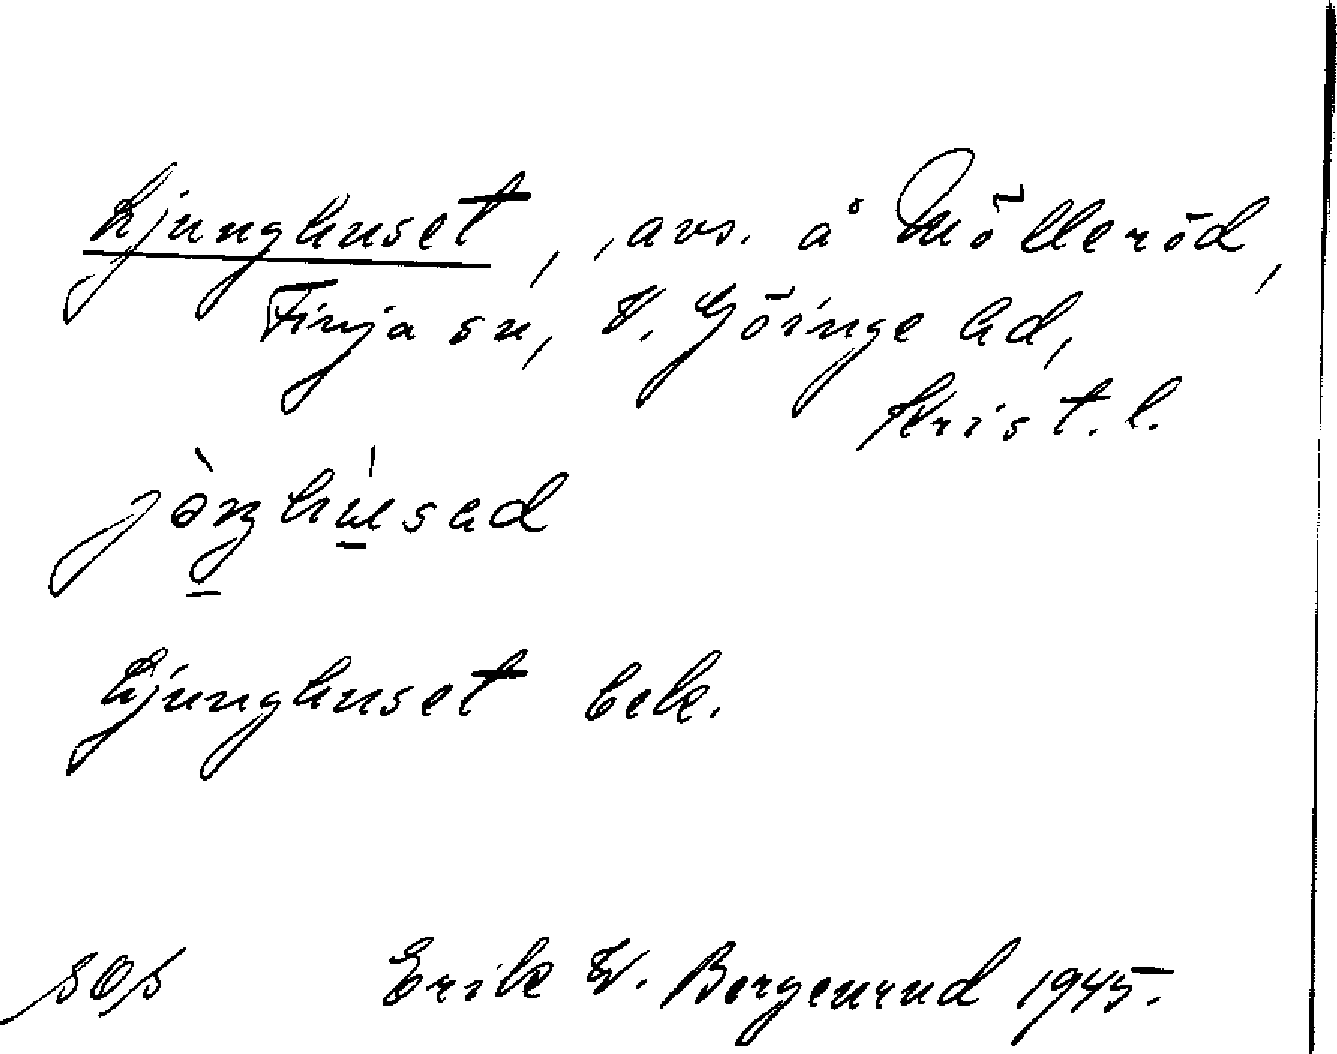 Ljunghuset, avs. å Mölleröd,
Finja sn, V. Göinge hd,
Krist. l.
Ljunghuset bek.
Erik W. Bergenrud 1945.